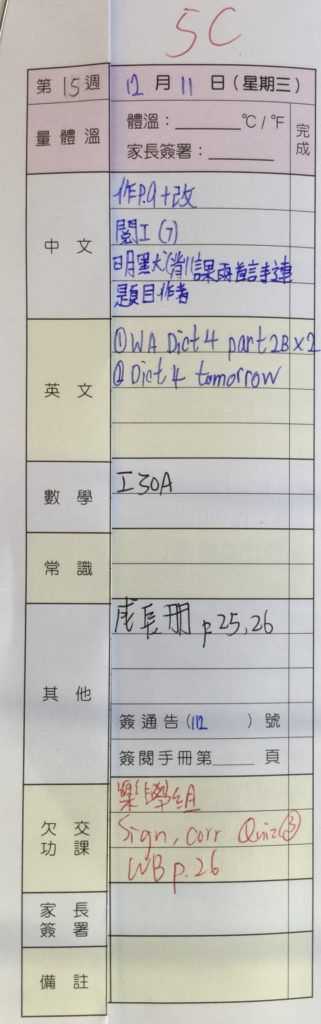 5C
第 15 週 12 月 11 日(星期三)
量體溫 體溫:______ ℃/℉ 完成
家長簽署:______
中文 作P.9+改
閱工(7)
明默大(背)課兩首言手連
題目作者
英文 ①WA Dict 4 part 2B×2
② Dict 4 tomorrow
數學 工30A
常識
其他 成長冊 p.25,26
簽通告(112 )號
簽閱手冊第____頁
欠交功課 樂學組
Sign, corr Quiz③
WB p.26
家長簽署
備註